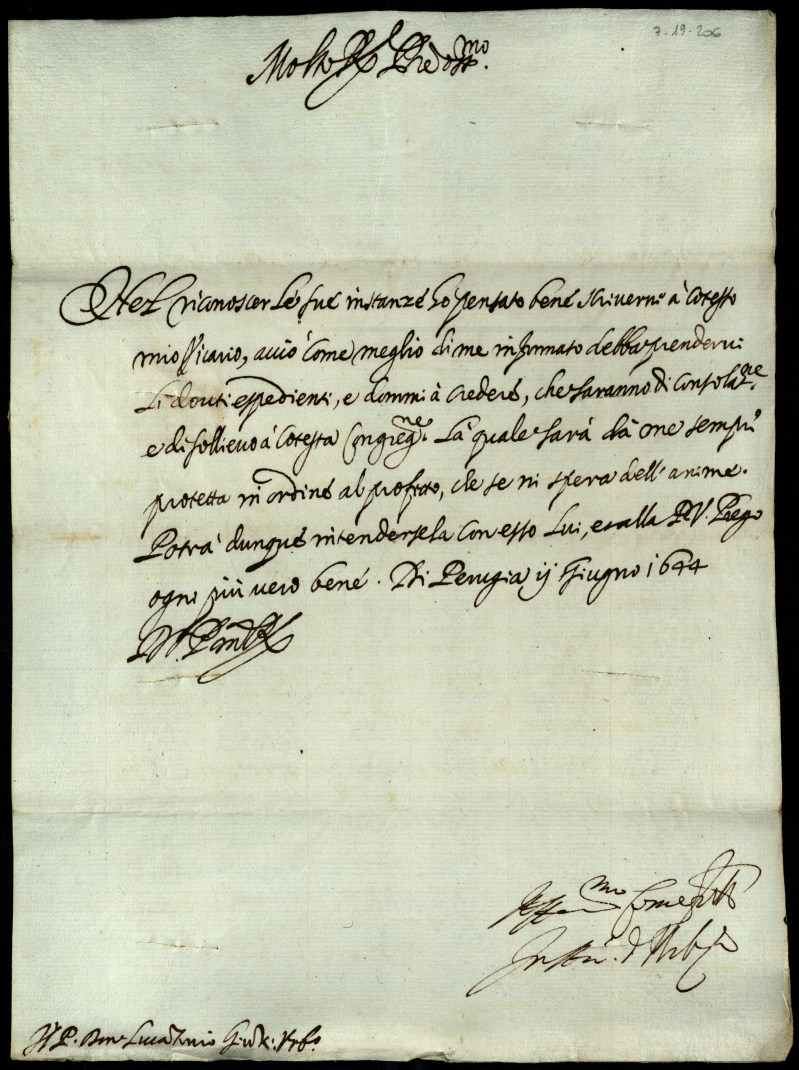 7-19-206
Molto R.do P.re oss.mo
Nel riconoscer le sue instanze hò pensato bene scriverne à cotesto
mio Vicario, acciò come meglio di me informato debba prendervi
li dovuti espedienti, e dommi à credere, che saranno di consola.ne
e di sollievo à cotesta Congreg.ne la quale sarà dà me sempre
protetta in ordine al profitto, che se ni spera dell'anime.
Potrà dunque intendersela con esso lui, et alla P.V. Prego
ogni più vero bene. Di Perugia ij Giugno 1644
D.V.P. m.to R.
Aff.mo come f.llo
d'Urb.o
Il P. Lucantonio Urb.o